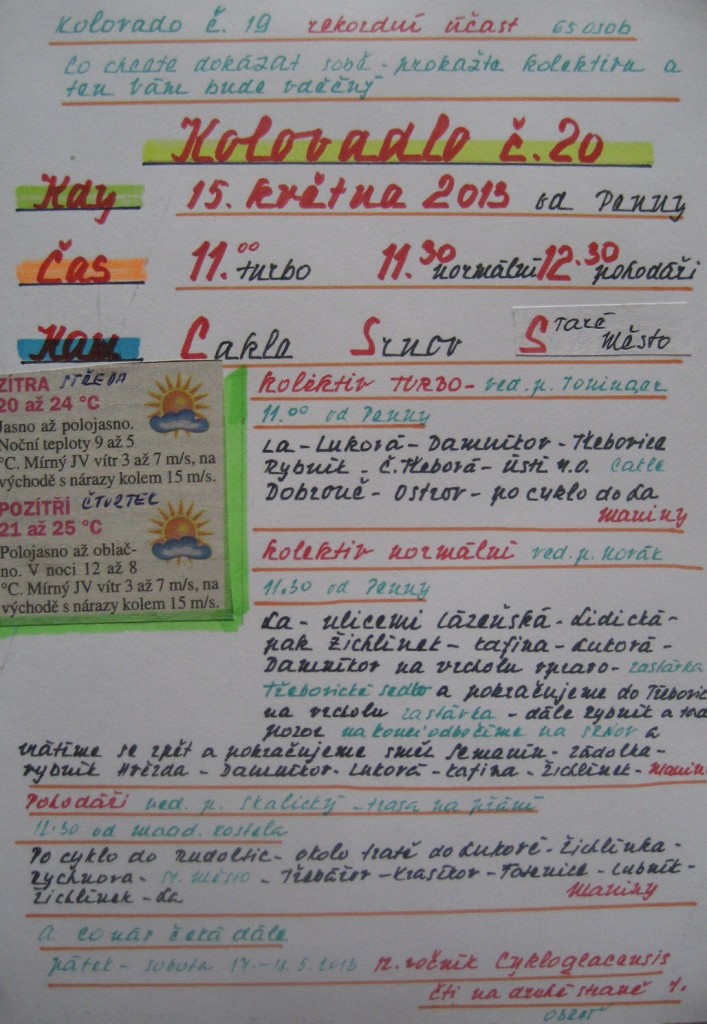 Kolovado č. 19 rekordní účast 65 osob
Co chcete dokázat sobě - prokažte kolektivu a
ten Vám bude vděčný
Kolovadlo č. 20
Kdy 15. května 2013 od Penny
Čas 11.00 turbo 11.30 normální 12.30 pohodáři
Kam Cakle Srnov Staré Město
ZÍTRA STŘEDA
20 až 24 °C
Jasno až polojasno.
Noční teploty 9 až 5
°C. Mírný JV vítr 3 až 7 m/s, na
východě s nárazy kolem 15 m/s.
POZÍTŘÍ ČTVRTEK
21 až 25 °C
Polojasno až oblač-
no. V noci 12 až 8
°C. Mírný JV vítr 3 až 7 m/s, na
východě s nárazy kolem 15 m/s.
Kolektiv TURBO - ved. p. Toninger
11.00 od Penny
La - Luková - Damníkov - Třebovice
Rybník - Č. Třebová - Ústí n.o. Cakle
Dobrouč - Ostrov - po cyklo do La
Maniny
Kolektiv normální ved. p. Novák
11.30 od Penny
La - ulicemi Lázeňská - Lidická -
pak Žichlínek - Kafina - Luková -
Damníkov na vrcholu vpravo - zastávka
Třebovické sedlo a pokračujeme do Třebovic
na vrcholu zastávka - dále Rybník a
pozor na konci odbočíme na SRNOV a
vrátíme se zpět a pokračujeme směr Semanín - Zádolka -
rybník Hvězda - Damníkov - Luková - Kafina - Žichlínek - Maniny
Pohodáři ved. p. Skalický - trasa na přání
12.30 od maad. kostela
Po cyklo do Rudoltic - okolo tratě do Lukové - Žichlínka -
Rychnova - St. Město - Třebařov - Krasíkov - Tatenice - Lubník -
Žichlínek - La Maniny
A co nás čeká dále
pátek - sobota 17. - 18. 5. 2013 12. ročník Cykloglacensis
čti na druhé straně
obrať